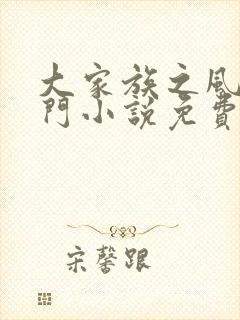 大家族之風
門小說免費
宋馨跟